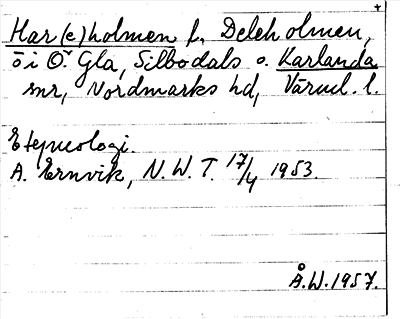 Har(e)holmen l. Deleholmen,
ö i Ö. Gla, Silbodals o. Karlanda
snr, Nordmarks hd, Värml. l.
Etymologi.
A. Ernvik, N.W.T. 17/4 1953.
Å.W. 1957.